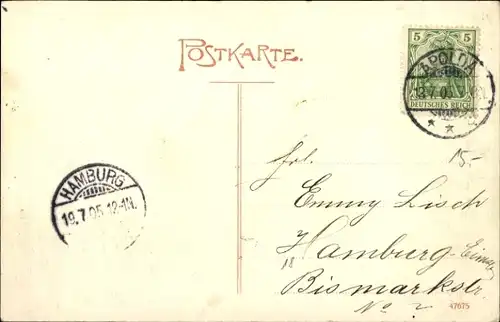 POSTKARTE.
5 5
DEUTSCHES REICH
APOLDA
HAMBURG
19.7.05.12-1N.
15.-
Frl.
Emmy Lisch
Hamburg-
18
Bismarkstr.
No 2
47675